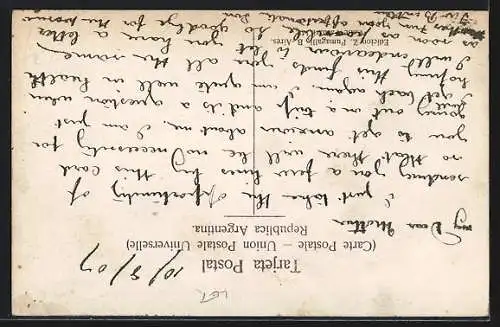 Tarjeta Postal
(Carte Postale — Union Postale Universelle)
Republica Argentina.
10/8/07
My Dear Mother
I just take the opportunity of
sending you a few lines by this card
so that there will be no necessity for
you to get anxious about me. I am just
going out on a trip and its a question when
I get back again. I am quite well in health
hoping this finds you all the same,
I will endeavour to let you have a letter
as soon as possible so goodbye for the present
from your affectionate Son
Editor Z. Fumagalli, B. Aires.